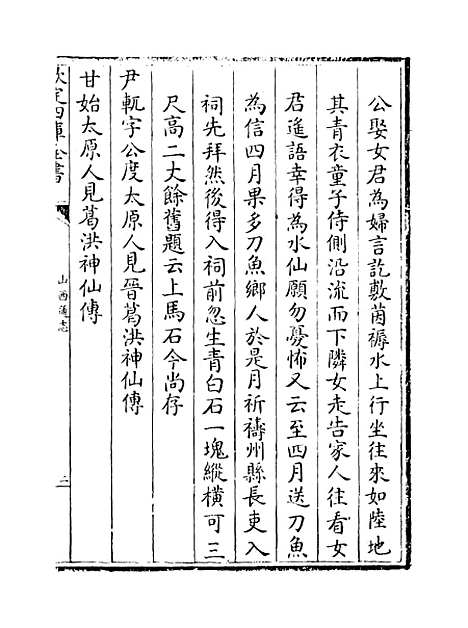 公娶女君為婦言訖敷茵褥水上行坐往來如陸地
其青衣童子侍側沿流而下隣女走告家人往看女
君遙語幸得為水仙願勿憂怖又云至四月送刀魚
為信四月果多刀魚鄉人於是月祈禱州縣長吏入
祠先拜然後得入祠前忽生青白石一塊縱橫可三
尺高二丈餘舊題云上馬石今尚存
尹軌字公度太原人見晉葛洪神仙傳
甘始太原人見葛洪神仙傳
欽定四庫全書
山西通志
三